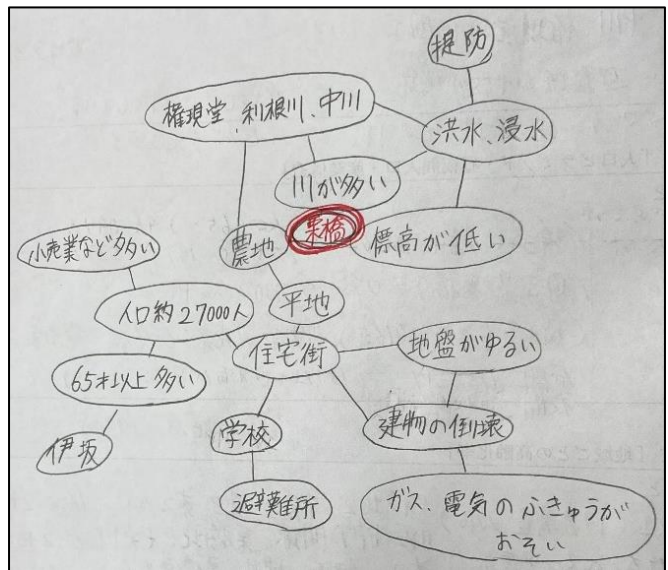 堤防
権現堂、利根川、中川
洪水、浸水
川が多い
栗橋
標高が低い
農地
小売業など多い
平地
人口約27000人
住宅街
地盤がゆるい
65才以上多い
学校
建物の倒壊
伊坂
避難所
ガス、電気のふきゅうが
おそい